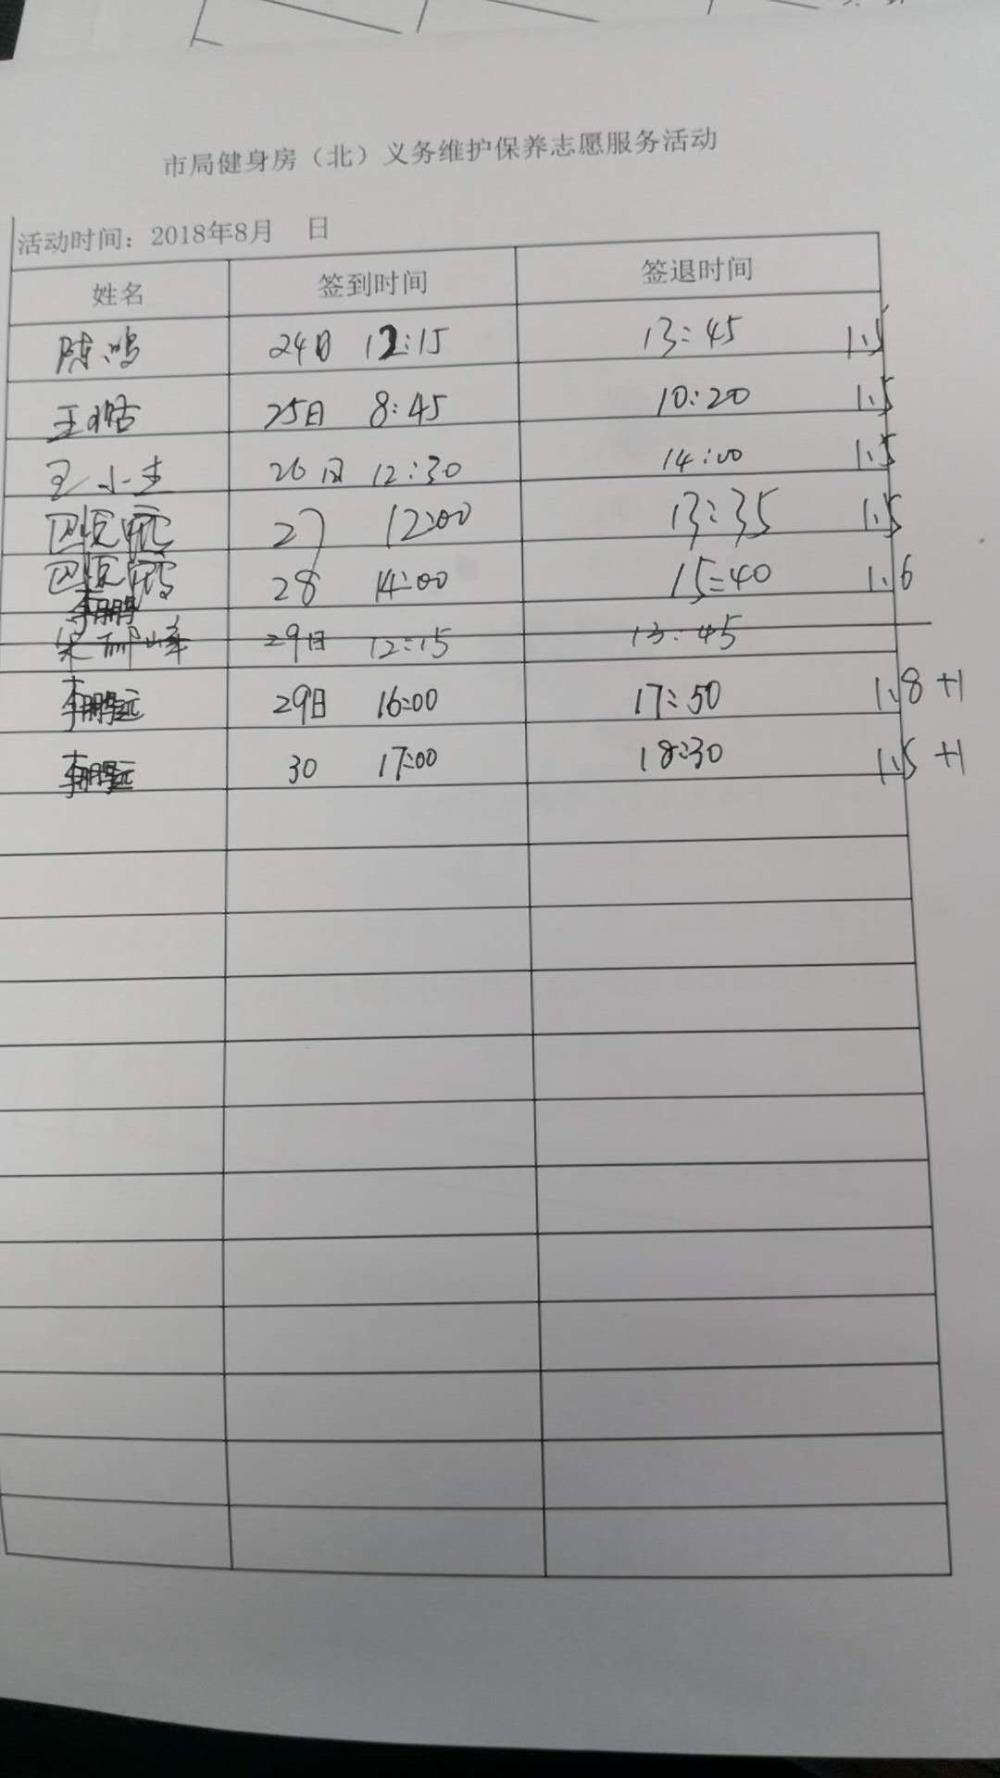 市局健身房（北）义务维护保养志愿服务活动
活动时间：2018年8月 日
姓名 签到时间 签退时间
陈鸿 24日 12:15 13:45 1.5
王 25日 8:45 10:20 1.5
王小 26日 12:30 14:00 1.5
27 12:00 13:35 1.5
28 14:00 15:40 1.6
李鹏
宋 峰 29日 12:15 13:45
李鹏远 29日 16:00 17:50 1.8 +1
李鹏远 30 17:00 18:30 1.5 +1